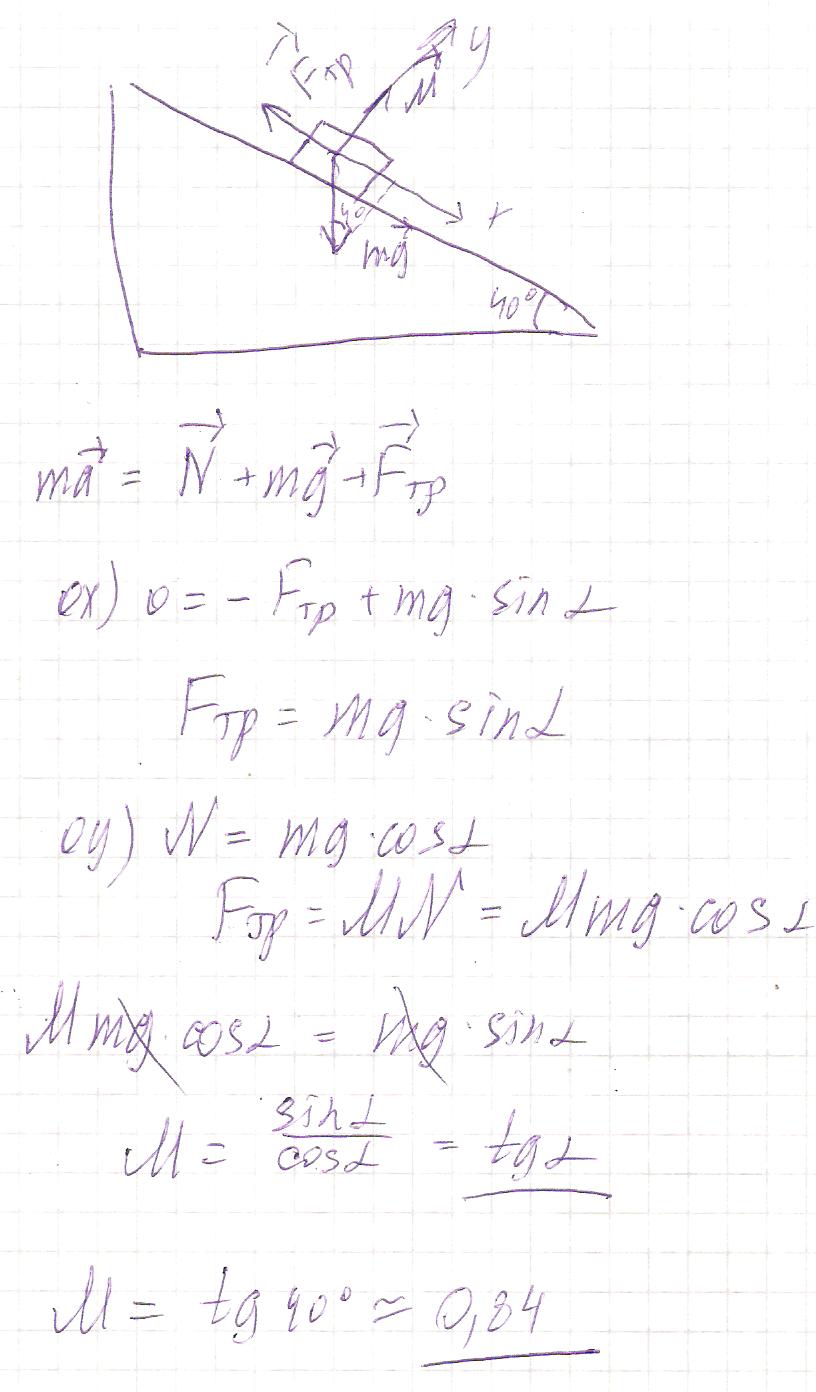 Fтр
y
N
x
40°
mg
40°
ma = N + mg + Fтр
ox) 0 = - Fтр + mg · sin α
Fтр = mg · sin α
oy) N = mg · cos α
Fтр = μN = μmg · cos α
μmg · cos α = mg · sin α
μ = sin α / cos α = tg α
μ = tg 40° ≃ 0,84